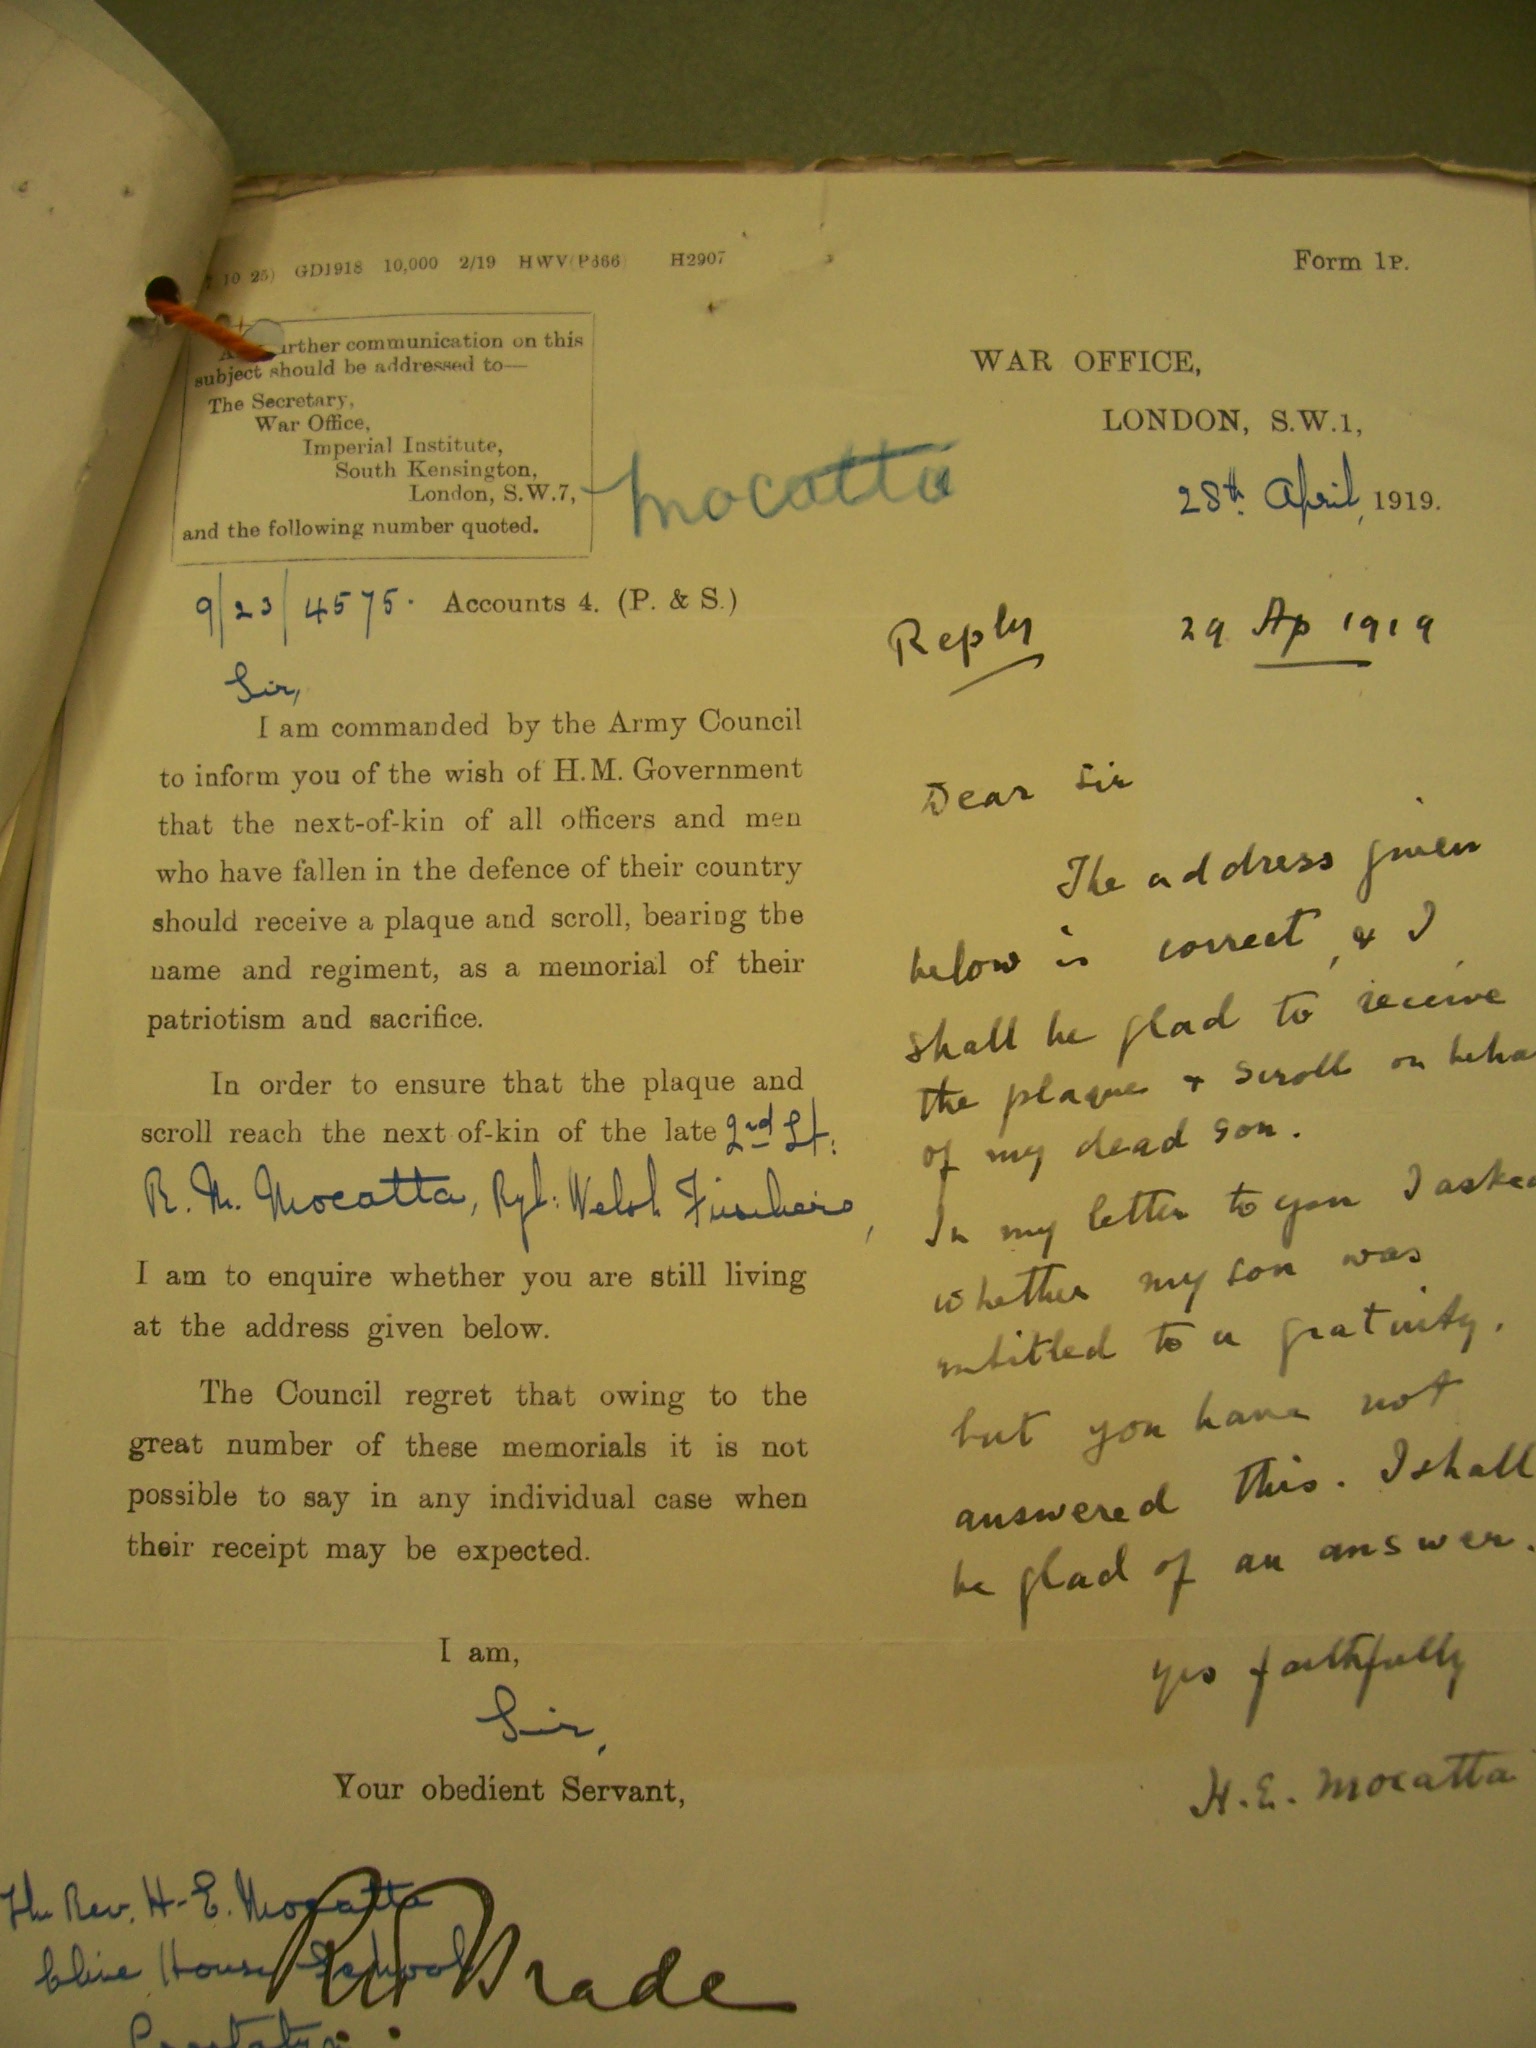 10 25) GD1918 10,000 2/19 HWV(P366) H2907
Form 1P.
further communication on this
subject should be addressed to—
The Secretary,
War Office,
Imperial Institute,
South Kensington,
London, S.W.7,
and the following number quoted.
Mocatta
WAR OFFICE,
LONDON, S.W.1,
28th April, 1919.
9/23/4575. Accounts 4. (P. & S.)
Sir,
I am commanded by the Army Council
to inform you of the wish of H.M. Government
that the next-of-kin of all officers and men
who have fallen in the defence of their country
should receive a plaque and scroll, bearing the
name and regiment, as a memorial of their
patriotism and sacrifice.
In order to ensure that the plaque and
scroll reach the next of-kin of the late 2nd Lt:
R. M. Mocatta, Ryl: Welsh Fusiliers,
I am to enquire whether you are still living
at the address given below.
The Council regret that owing to the
great number of these memorials it is not
possible to say in any individual case when
their receipt may be expected.
I am,
Sir,
Your obedient Servant,
The Rev. H. E. Mocatta
Clive House School
Reply 29 Ap 1919
Dear Sir
The address given
below is correct, & I
shall be glad to receive
the plaque & scroll on beha
of my dead son.
In my letter to you I asked
whether my son was
entitled to a gratuity.
but you have not
answered this. I shall
be glad of an answer.
yrs faithfully
H. E. Mocatta